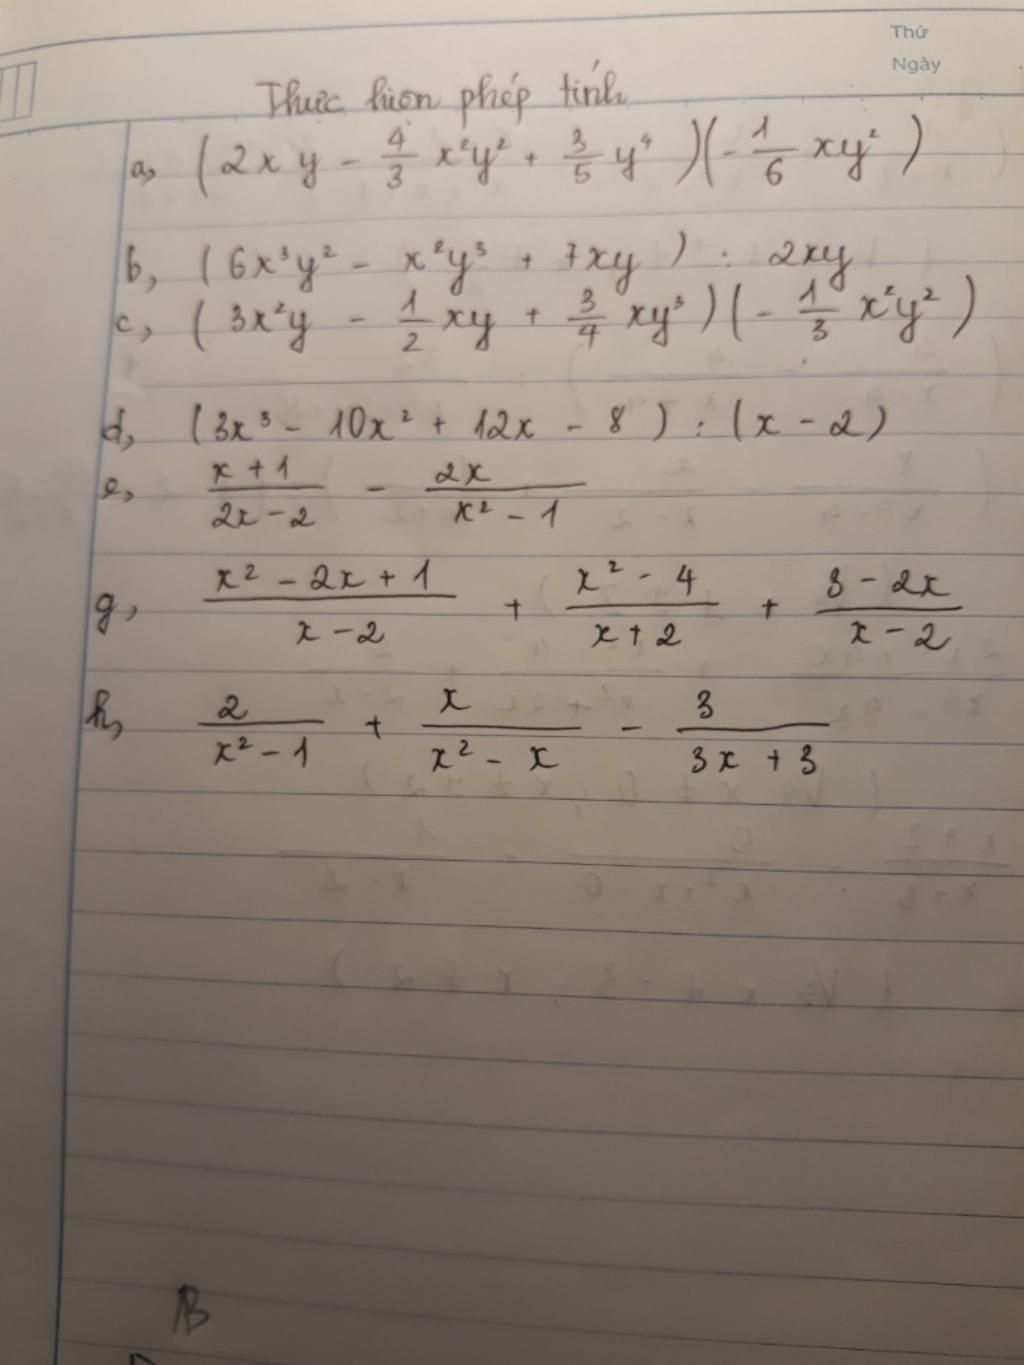 Thứ
Ngày
Thực hiện phép tính
a, (2xy - 4/3 x²y² + 3/5 y⁴)(- 1/6 xy²)
b, (6x³y² - x²y³ + 7xy) : 2xy
c, (3x²y - 1/2 xy + 3/4 xy³)(- 1/3 x²y²)
d, (3x³ - 10x² + 12x - 8) : (x - 2)
e, (x + 1)/(2x - 2) - 2x/(x² - 1)
g, (x² - 2x + 1)/(x - 2) + (x² - 4)/(x + 2) + (3 - 2x)/(x - 2)
h, 2/(x² - 1) + x/(x² - x) - 3/(3x + 3)
B